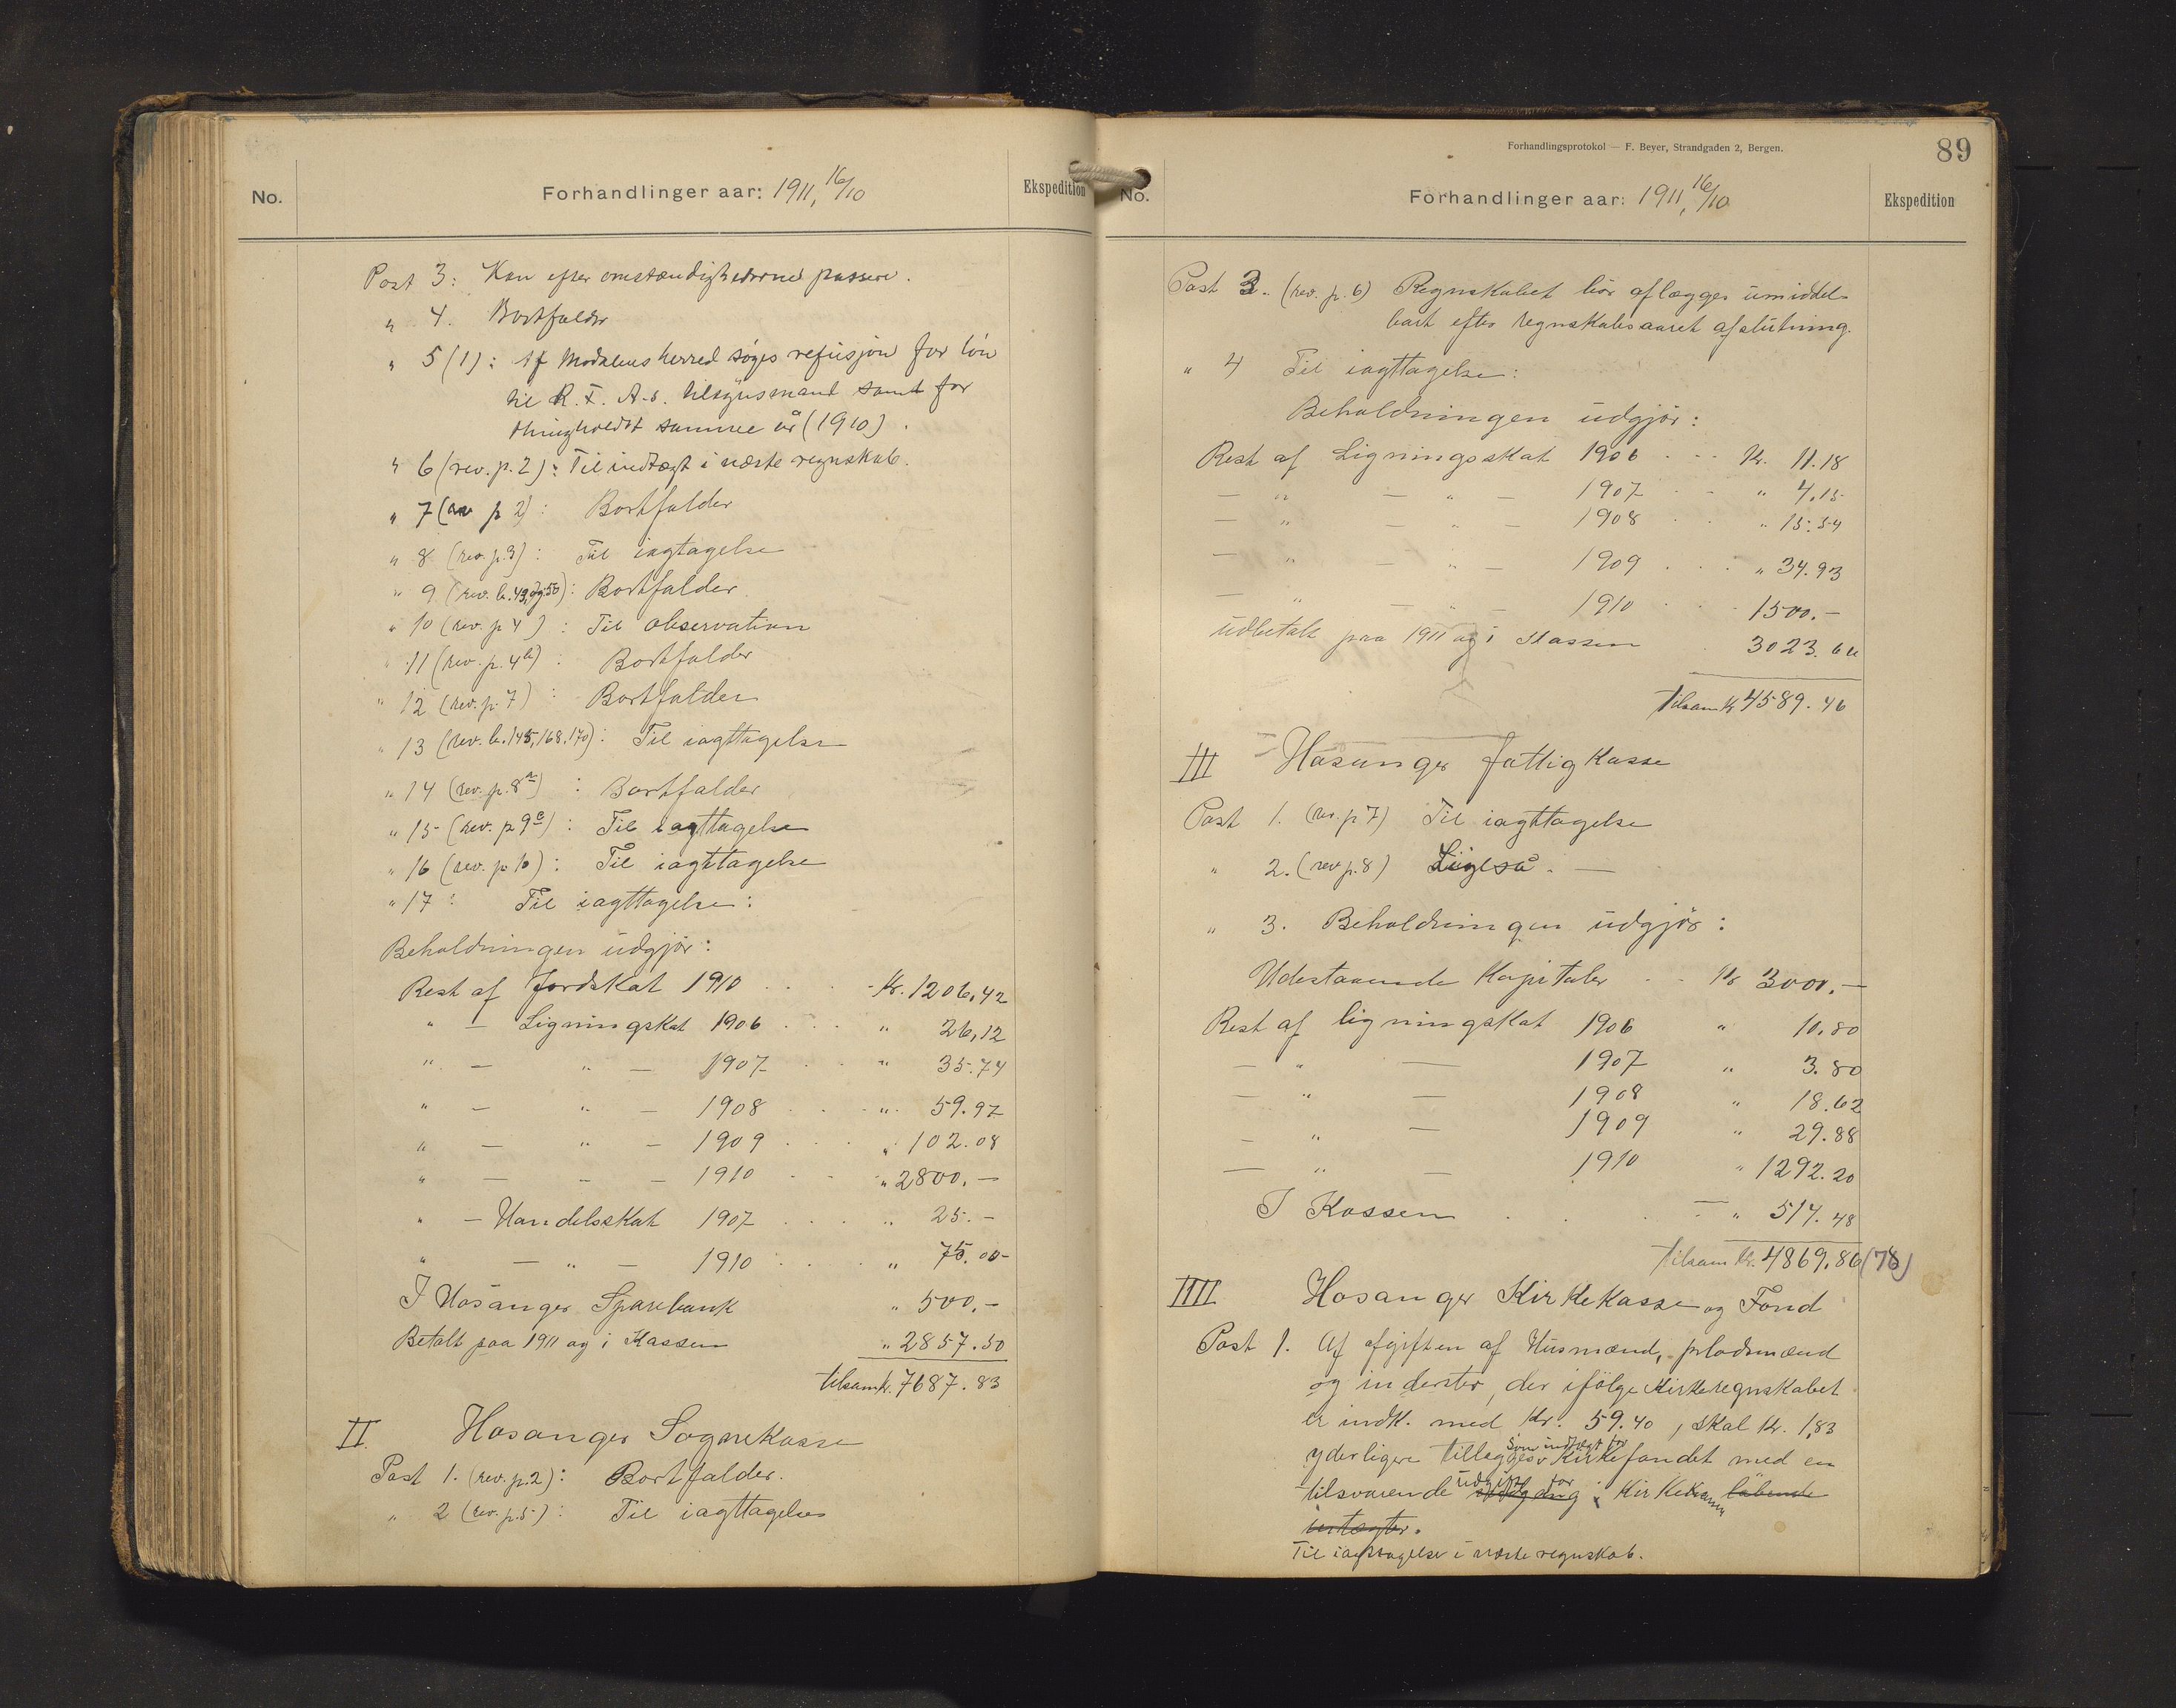 No.
Forhandlinger aar: 1911, 16/10
Ekspedition
Post 3: Kan efter omstændighederne passere.
" 4. Bortfalder
" 5 (1): Af Modalens herred søges refusjon for løn
til R. F. A.s. tilsynsmand samt for
thingholdet samme år (1910).
" 6 (rev. p. 2): Til indtægt i næste regnskab.
" 7 (rev p 2): Bortfalder
" 8 (rev. p. 3): Til iagtagelse
" 9 (rev. b. 49, og 50): Bortfalder
" 10 (rev. p 4): Til observation
" 11 (rev. p. 4b): Bortfalder
" 12 (rev. p. 7): Bortfalder
" 13 (rev. b. 145, 168, 170): Til iagttagelse
" 14 (rev. p. 8a): Bortfalder
" 15 (rev. p 9c): Til iagttagelse
" 16 (rev. p. 10): Til iagttagelse
" 17: Til iagttagelse:
Beholdningen udgjør:
Rest af Jordskat 1910 Kr. 1206,42
" — Ligningskat 1906 " 26,12
" — " — 1907 " 35.74
" — " — 1908 " 59.97
" — " — 1909 " 102.08
" — " — 1910 " 2800.—
" — Handelsskat 1907 " 25.—
" — " — 1910 " 75.00
I Hosanger Sparebank " 500.—
Betalt paa 1911 og i Kassen " 2857.50
tilsam kr. 7687.83
II. Hosanger Sognekasse
Post 1. (rev. p. 2): Bortfalder.
" 2 (rev. p. 5): Til iagttagelse
Forhandlingsprotokol — F. Beyer, Strandgaden 2, Bergen.
89
No.
Forhandlinger aar: 1911, 16/10
Ekspedition
Post 3. (rev. p. 6) Regnskabet bør aflægges umiddel-
bart efter regnskabsaaret afslutning.
" 4 Til iagttagelse:
Beholdningen udgjør:
Rest af Ligningsskat 1906 Kr. 11.18
— " — " — 1907 " 4.15
— " — " — 1908 " 15.54
— " — " — 1909 " 34.93
— " — " — 1910 1500.—
Udbetalt paa 1911 og i Kassen 3023.66
Tilsam Kr 4589.46
III Hosanger fattigkasse
Post 1. (rev. p 7) Til iagttagelse
" 2. (rev p. 8) Ligeså. —
" 3. Beholdningen udgjør:
Udestaaende Kapitaler Kr 3000.—
Rest af ligningskat 1906 " 10.80
— " — 1907 " 3.80
— " — 1908 " 18.62
— " — 1909 " 29.88
— " — 1910 " 1292.20
I Kassen " 514.48
Tilsam Kr. 4869.86 (78)
IIII Hosanger Kirkekasse og Fond
Post 1. Af afgiften af Husmænd, pladsmænd
og inderster, der ifølge Kirkeregnskabet
er indk. med Kr. 59.40, skal Kr. 1,83
yderligere tillegges som indtægt for Kirkefondet med en
tilsvarende udgift for Kirkekassen løbende
intægter.
Til iagttagelse i næste regnskab.